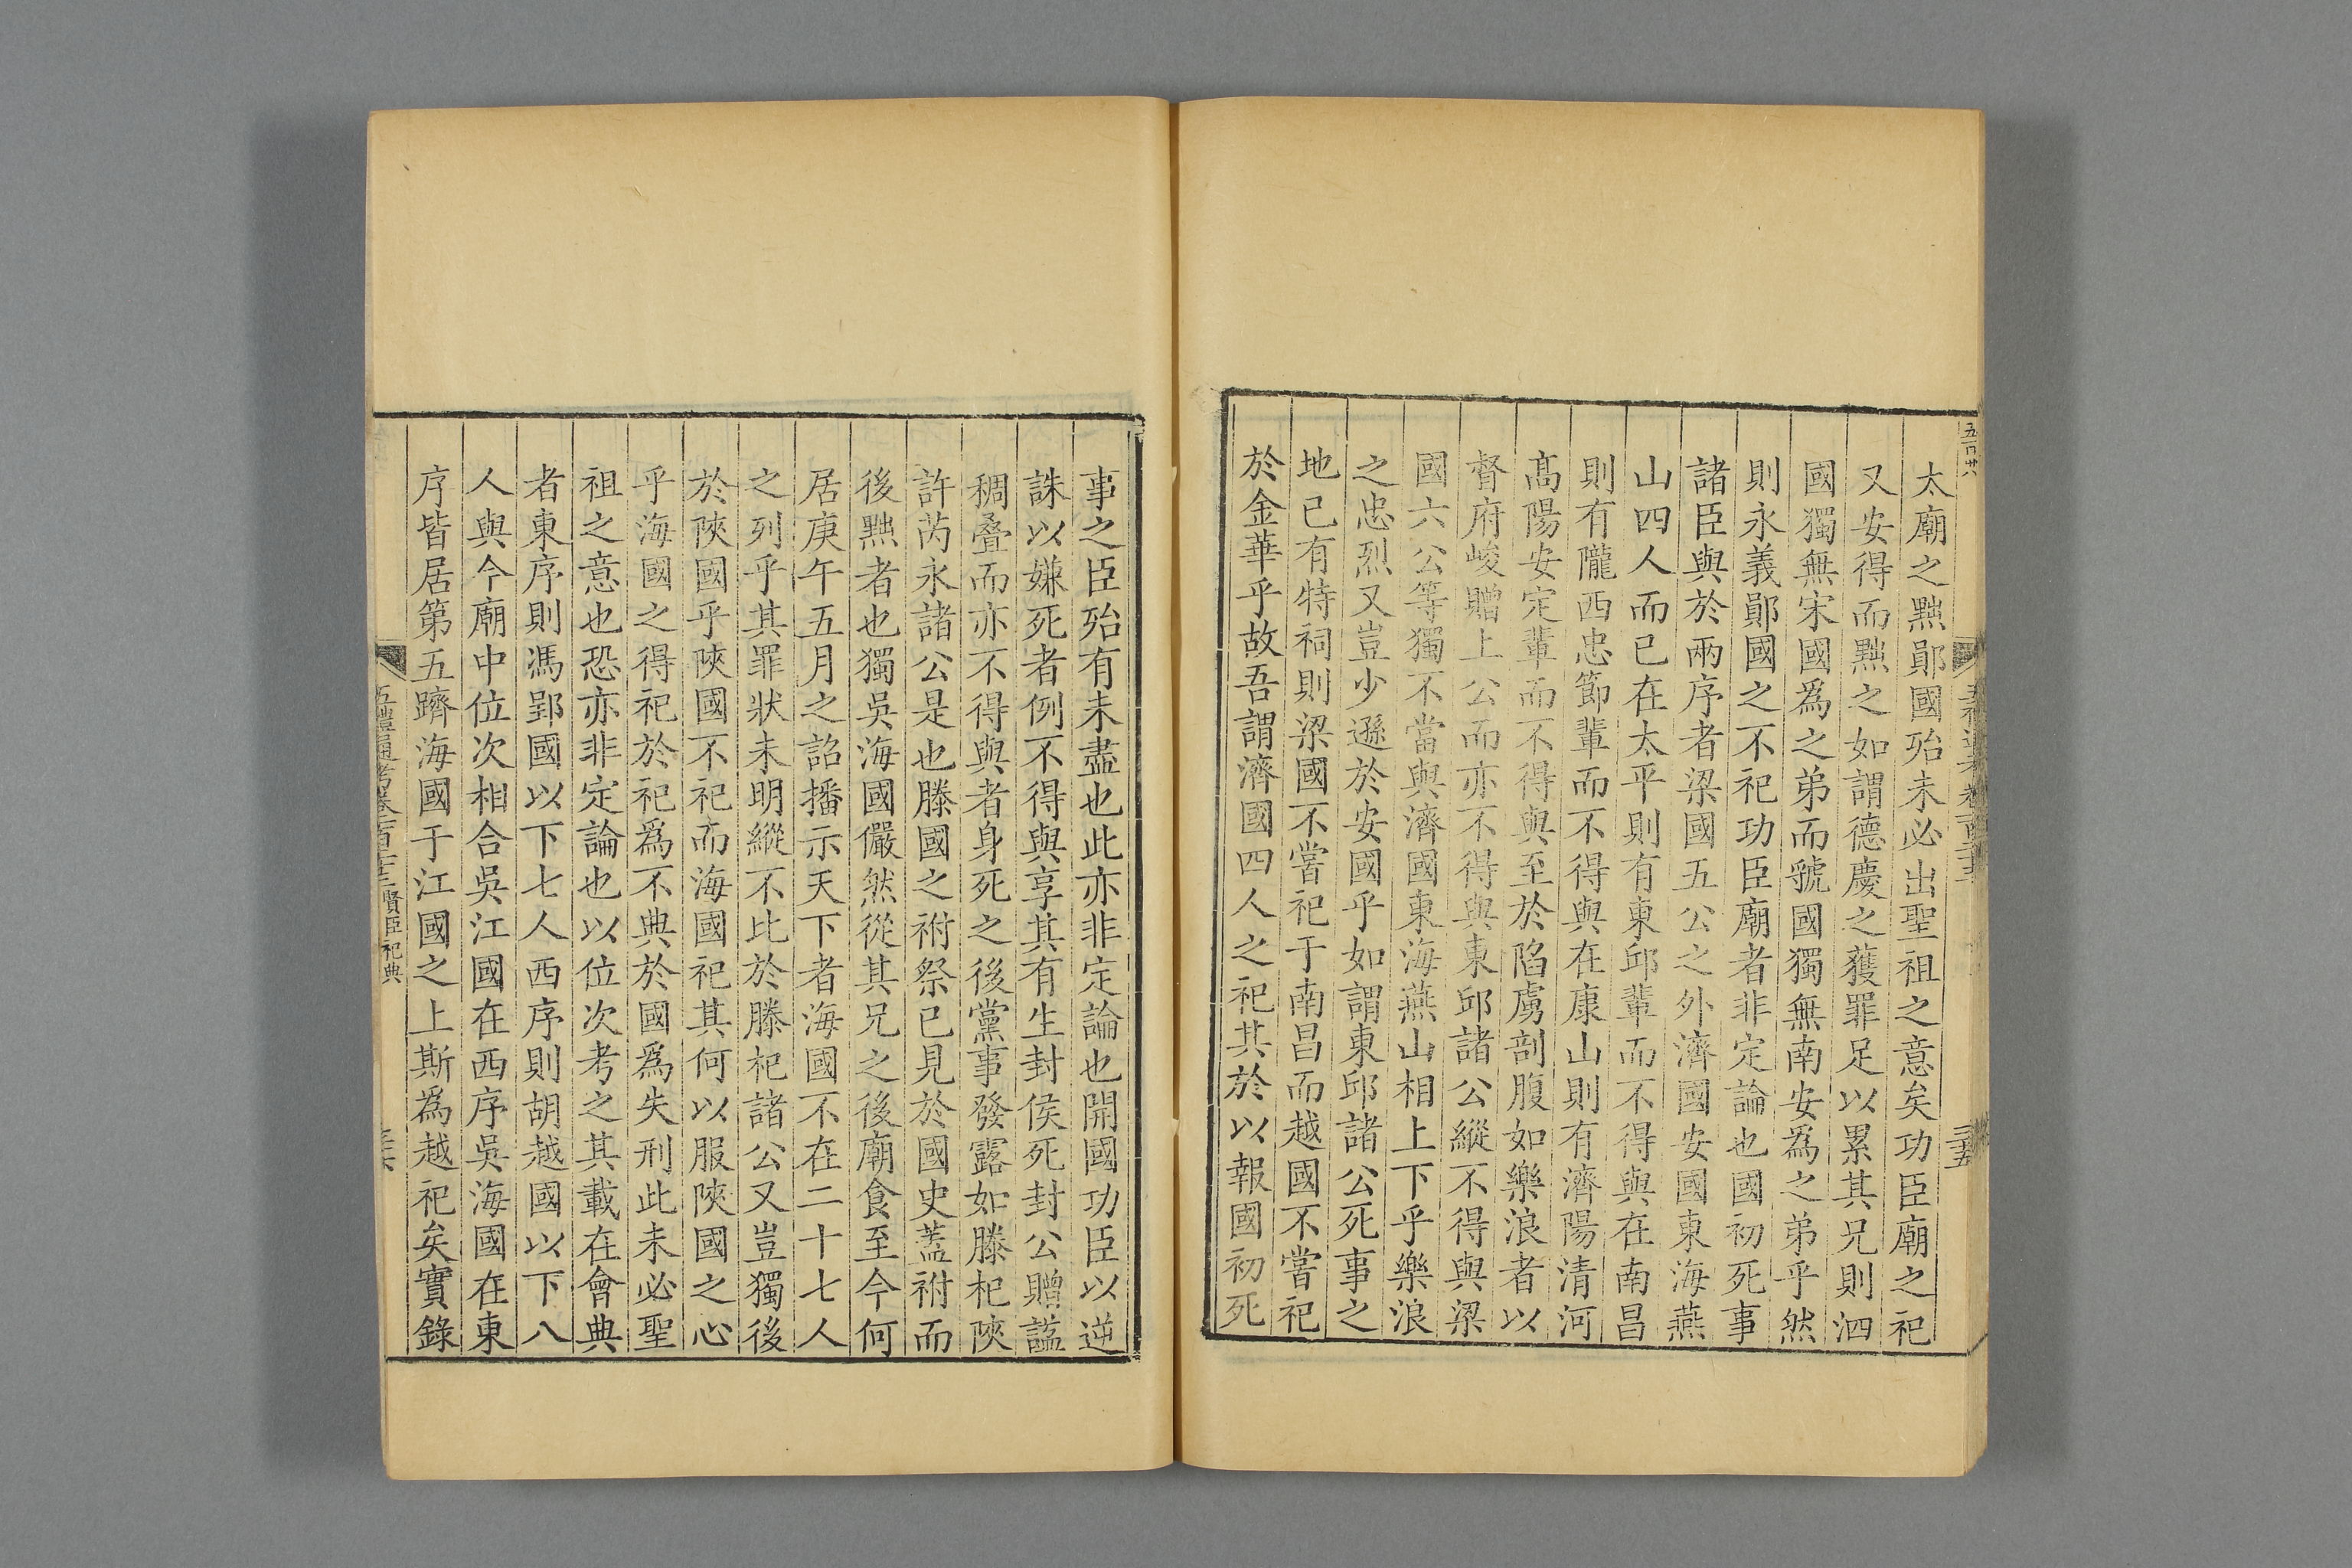 太廟之黜鄖國殆未必出聖祖之意矣功臣廟之祀
又安得而黜之如謂德慶之獲罪足以累其兄則泗
國獨無宋國爲之弟而虢國獨無南安爲之弟乎然
則永義鄖國之不祀功臣廟者非定論也國初死事
諸臣與於兩序者梁國五公之外濟國安國東海燕
山四人而已在太平則有東邱輩而不得與在南昌
則有隴西忠節輩而不得與在康山則有濟陽清河
高陽安定輩而不得與至於陷虜剖腹如樂浪者以
督府峻贈上公而亦不得與東邱諸公縱不得與梁
國六公等獨不當與濟國東海燕山相上下乎樂浪
之忠烈又豈少遜於安國乎如謂東邱諸公死事之
地已有特祠則梁國不當祀于南昌而越國不當祀
於金華乎故吾謂濟國四人之祀其於以報國初死
事之臣殆有未盡也此亦非定論也開國功臣以逆
誅以嫌死者例不得與享其有生封侯死封公贈諡
稠叠而亦不得與者身死之後黨事發露如滕杞陝
許芮永諸公是也滕國之祔祭已見於國史蓋祔而
後黜者也獨吳海國儼然從其兄之後廟食至今何
居庚午五月之詔播示天下者海國不在二十七人
之列乎其罪狀未明縱不比於滕杞諸公又豈獨後
於陝國乎陝國不祀而海國祀其何以服陝國之心
乎海國之得祀於祀爲不典於國爲失刑此未必聖
祖之意也恐亦非定論也以位次考之其載在會典
者東序則馮郢國以下七人西序則胡越國以下八
人與今廟中位次相合吳江國在西序吳海國在東
序皆居第五躋海國于江國之上斯為越祀矣實錄
五禮通考卷一百二十三 賢臣祀典